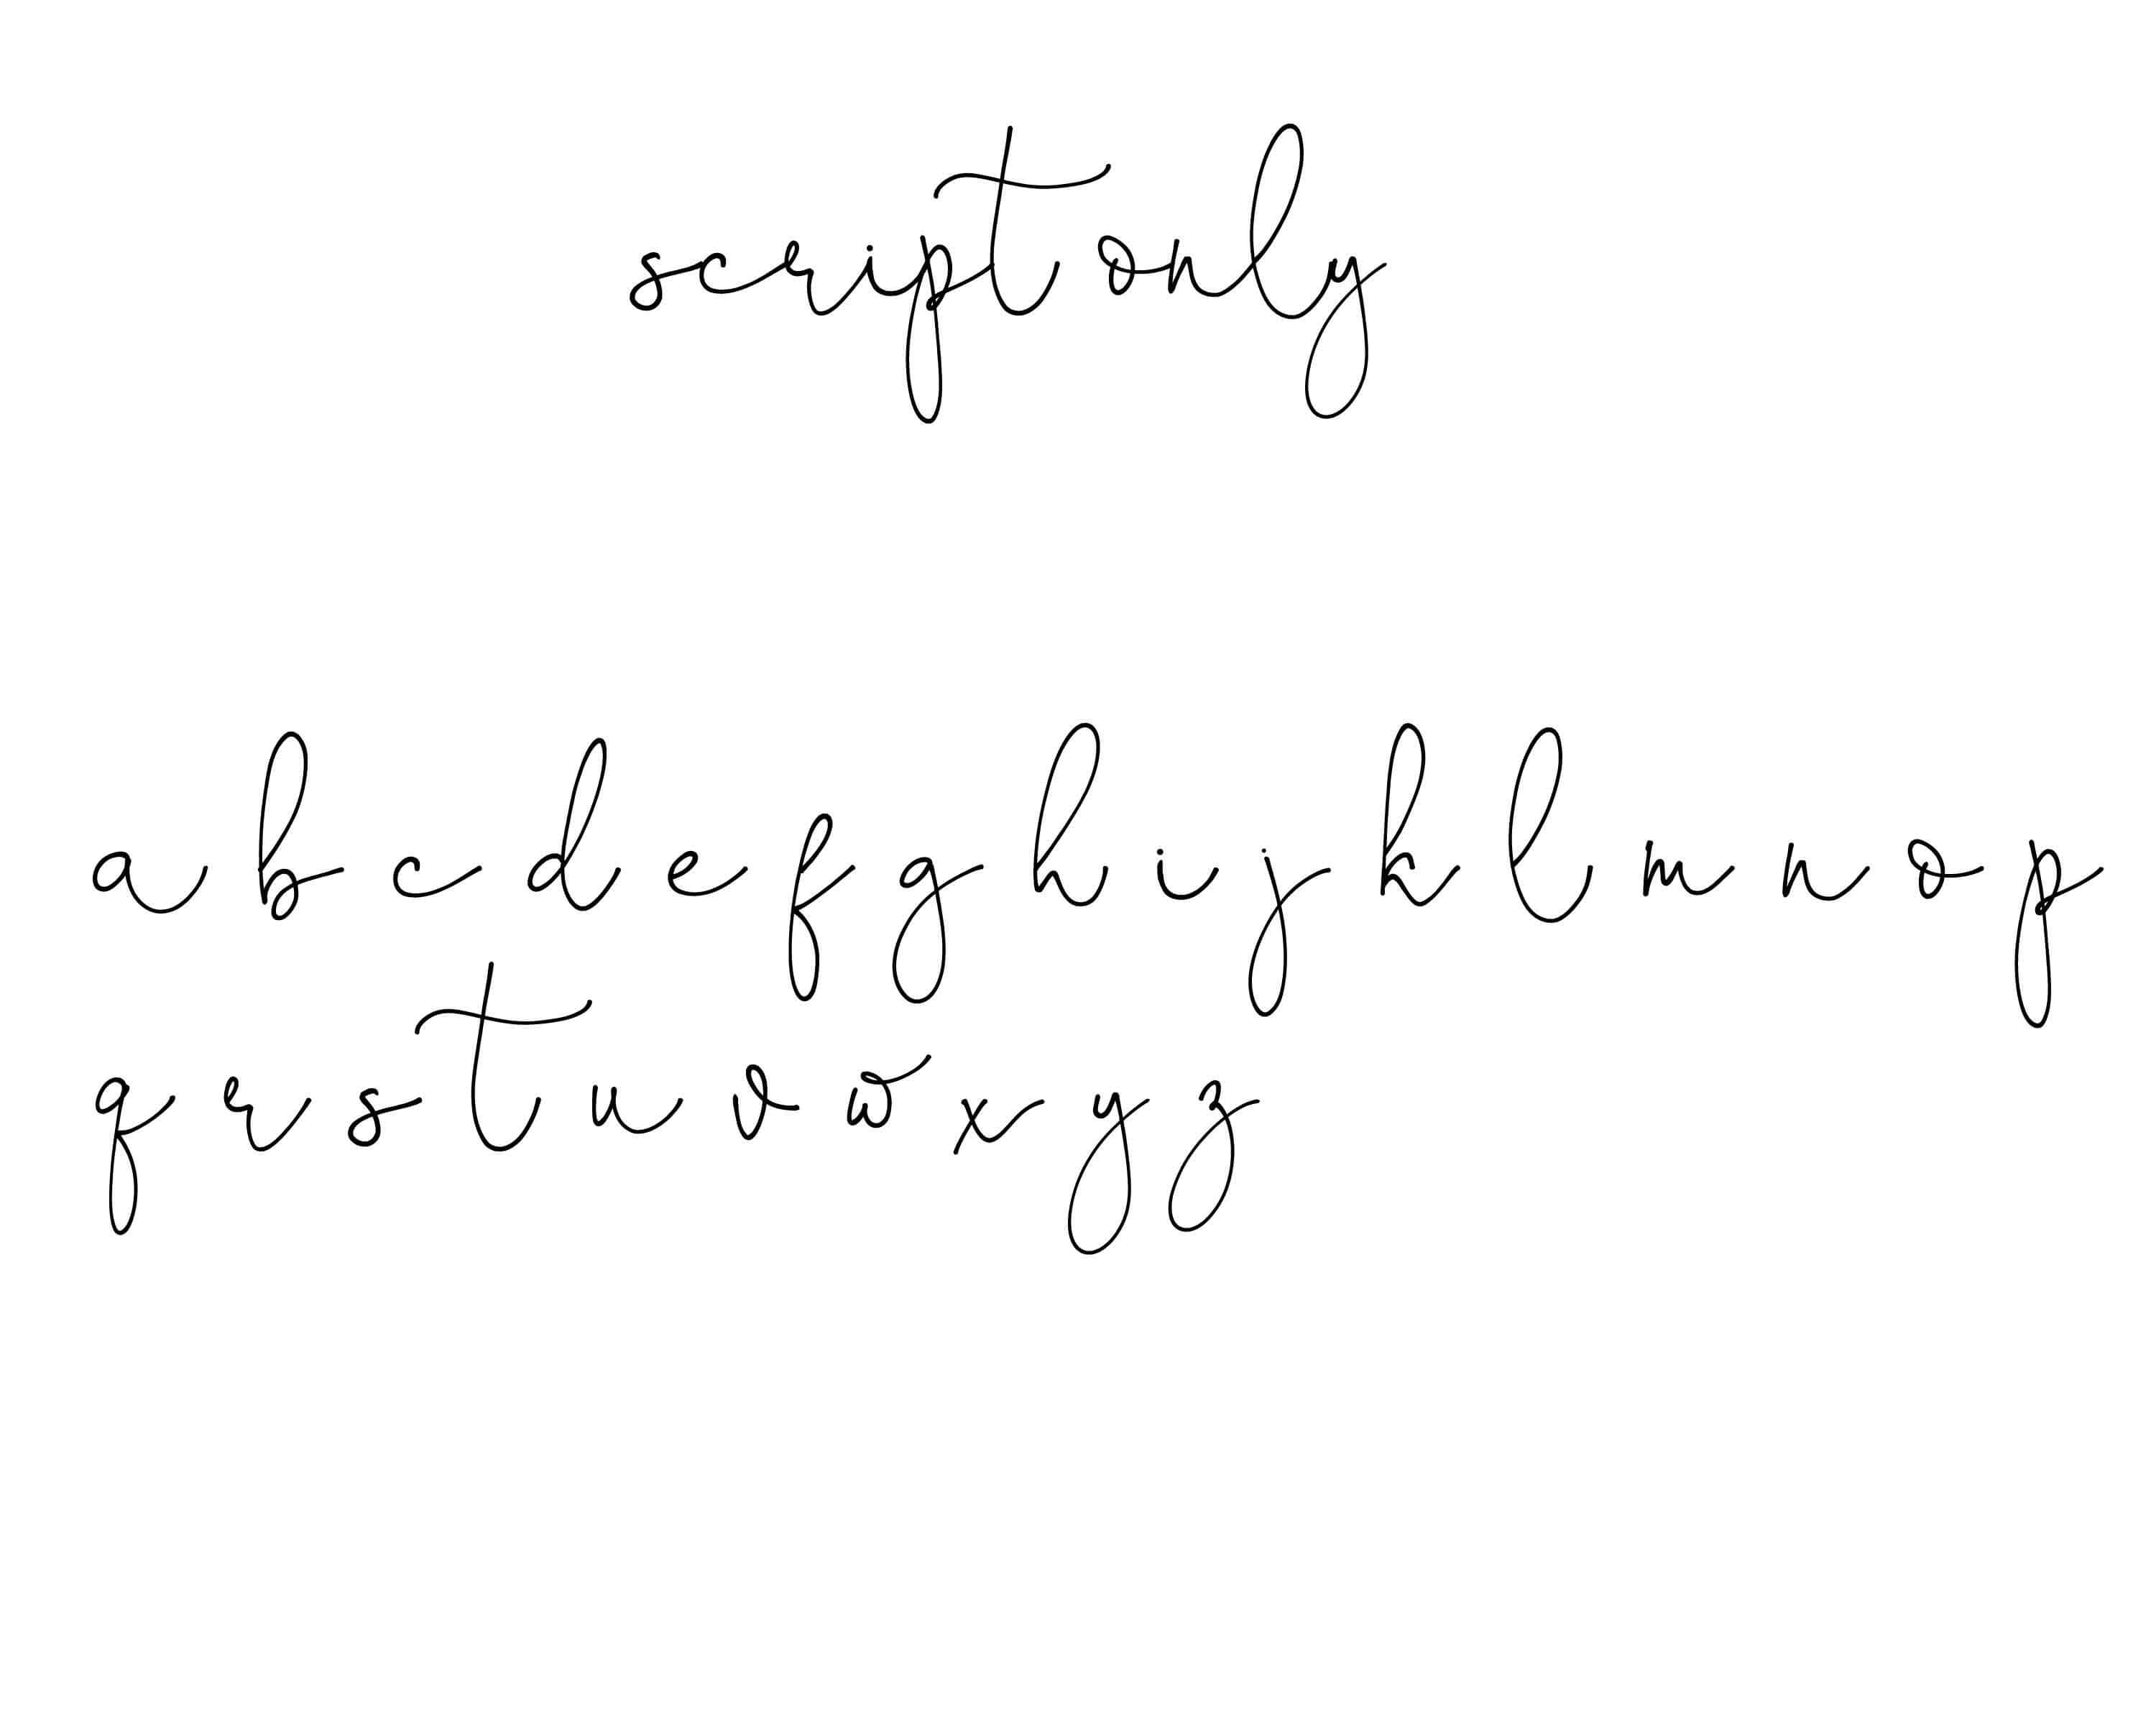 script only
a b c d e f g h i j k l m n o p
q r s t u v w x y z